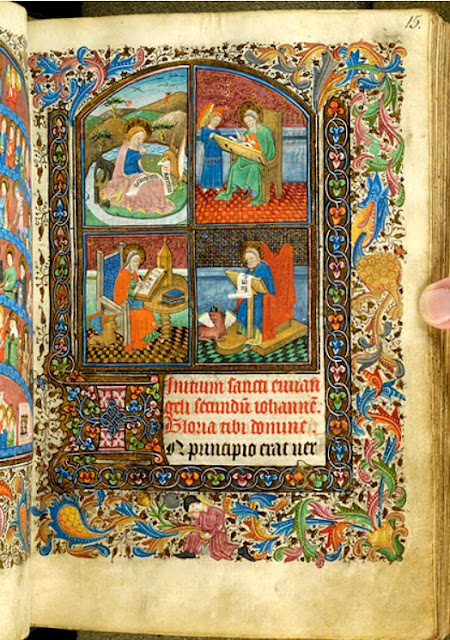 15.
Initium sancti euuan
geli secundū iohannē.
Gloria tibi domine
IN principio erat uer